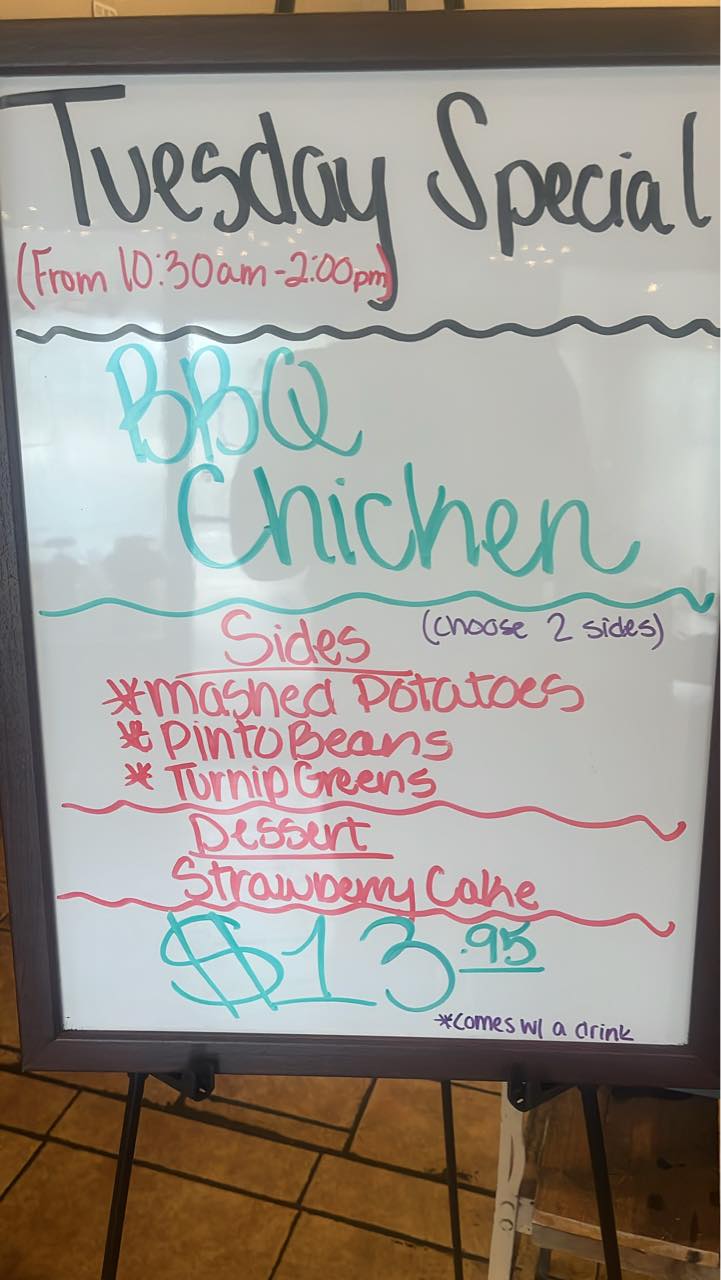 Tuesday Special
(From 10:30am-2:00pm)
BBQ
Chicken
Sides (choose 2 sides)
*mashed Potatoes
* Pinto Beans
* Turnip Greens
Dessert
Strawberry Cake
$13.95
*comes w/ a drink